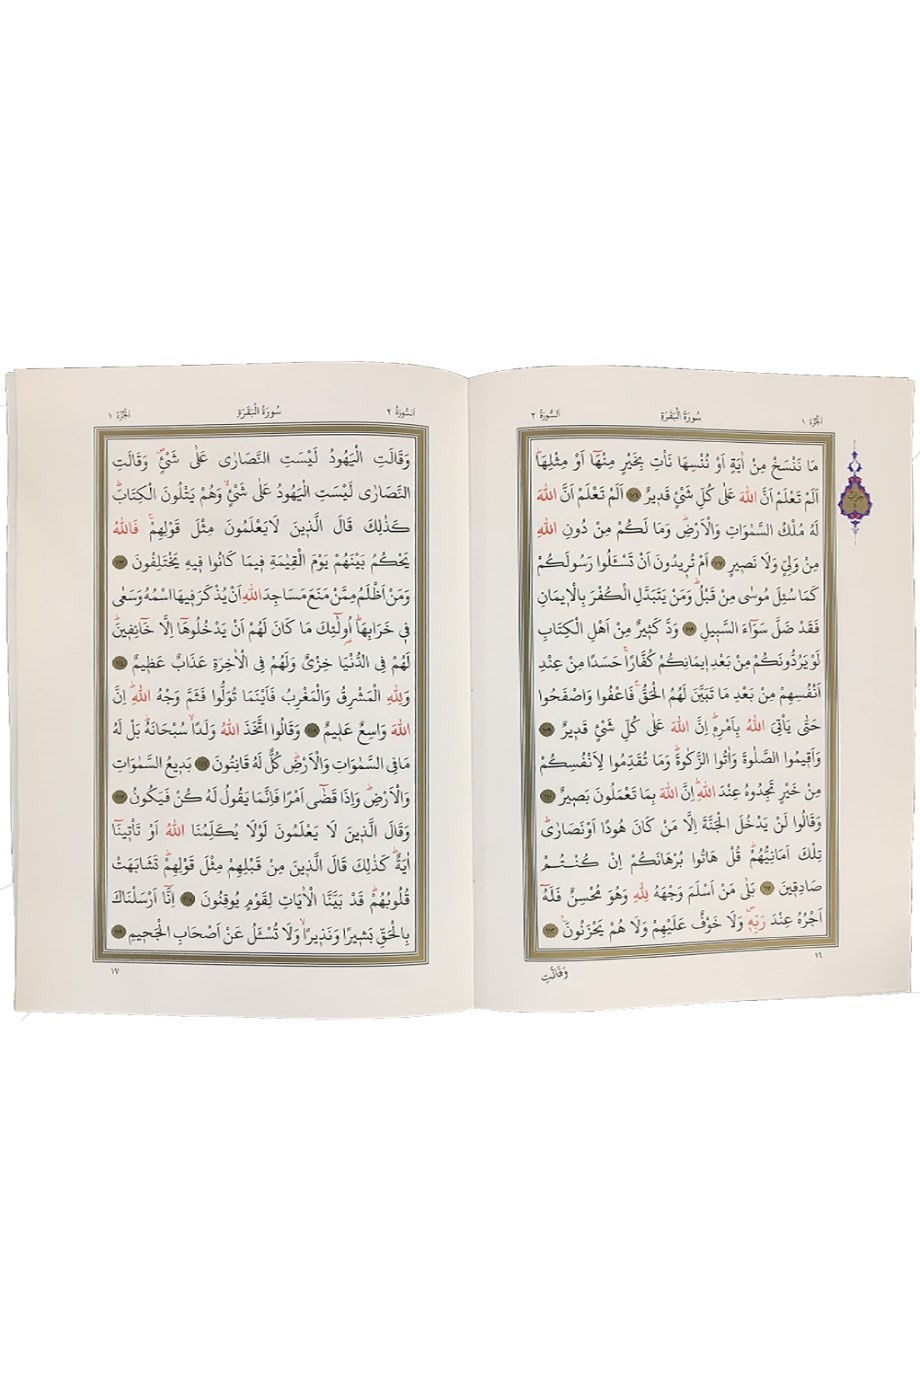 الجزء ١
سورة البقرة
السورة ٢
مَا نَنْسَخْ مِنْ اٰيَةٍ اَوْ نُنْسِهَا نَأْتِ بِخَيْرٍ مِنْهَٓا اَوْ مِثْلِهَاۜ
اَلَمْ تَعْلَمْ اَنَّ اللّٰهَ عَلٰى كُلِّ شَيْءٍ قَدٖيرٌ ﴿١٠٦﴾ اَلَمْ تَعْلَمْ اَنَّ اللّٰهَ
لَهُ مُلْكُ السَّمٰوَاتِ وَالْاَرْضِۜ وَمَا لَكُمْ مِنْ دُونِ اللّٰهِ
مِنْ وَلِيٍّ وَلَا نَصٖيرٍ ﴿١٠٧﴾ اَمْ تُرٖيدُونَ اَنْ تَسْـَٔلُوا رَسُولَكُمْ
كَمَا سُئِلَ مُوسٰى مِنْ قَبْلُۜ وَمَنْ يَتَبَدَّلِ الْكُفْرَ بِالْاٖيمَانِ
فَقَدْ ضَلَّ سَوَٓاءَ السَّبٖيلِ ﴿١٠٨﴾ وَدَّ كَثٖيرٌ مِنْ اَهْلِ الْكِتَابِ
لَوْ يَرُدُّونَكُمْ مِنْ بَعْدِ اٖيمَانِكُمْ كُفَّارًاۚ حَسَدًا مِنْ عِنْدِ
اَنْفُسِهِمْ مِنْ بَعْدِ مَا تَبَيَّنَ لَهُمُ الْحَقُّۚ فَاعْفُوا وَاصْفَحُوا
حَتّٰى يَأْتِيَ اللّٰهُ بِاَمْرِهٖۜ اِنَّ اللّٰهَ عَلٰى كُلِّ شَيْءٍ قَدٖيرٌ ﴿١٠٩﴾
وَاَقٖيمُوا الصَّلٰوةَ وَاٰتُوا الزَّكٰوةَۜ وَمَا تُقَدِّمُوا لِاَنْفُسِكُمْ
مِنْ خَيْرٍ تَجِدُوهُ عِنْدَ اللّٰهِۜ اِنَّ اللّٰهَ بِمَا تَعْمَلُونَ بَصٖيرٌ ﴿١١٠﴾
وَقَالُوا لَنْ يَدْخُلَ الْجَنَّةَ اِلَّا مَنْ كَانَ هُودًا اَوْ نَصَارٰىۜ
تِلْكَ اَمَانِيُّهُمْۜ قُلْ هَاتُوا بُرْهَانَكُمْ اِنْ كُنْتُمْ
صَادِقٖينَ ﴿١١١﴾ بَلٰى مَنْ اَسْلَمَ وَجْهَهُ لِلّٰهِ وَهُوَ مُحْسِنٌ فَلَهُٓ
اَجْرُهُ عِنْدَ رَبِّهٖۖ وَلَا خَوْفٌ عَلَيْهِمْ وَلَا هُمْ يَحْزَنُونَ ﴿١١٢﴾
١٦
وَقَالَتِ
الجزء ١
سورة البقرة
السورة ٢
وَقَالَتِ الْيَهُودُ لَيْسَتِ النَّصَارٰى عَلٰى شَيْءٍۖ وَقَالَتِ
النَّصَارٰى لَيْسَتِ الْيَهُودُ عَلٰى شَيْءٍۙ وَهُمْ يَتْلُونَ الْكِتَابَۜ
كَذٰلِكَ قَالَ الَّذٖينَ لَا يَعْلَمُونَ مِثْلَ قَوْلِهِمْۚ فَاللّٰهُ
يَحْكُمُ بَيْنَهُمْ يَوْمَ الْقِيٰمَةِ فٖيمَا كَانُوا فٖيهِ يَخْتَلِفُونَ ﴿١١٣﴾
وَمَنْ اَظْلَمُ مِمَّنْ مَنَعَ مَسَاجِدَ اللّٰهِ اَنْ يُذْكَرَ فٖيهَا اسْمُهُ وَسَعٰى
فٖي خَرَابِهَاۜ اُو۬لٰٓئِكَ مَا كَانَ لَهُمْ اَنْ يَدْخُلُوهَٓا اِلَّا خَٓائِفٖينَۜ
لَهُمْ فِي الدُّنْيَا خِزْيٌ وَلَهُمْ فِي الْاٰخِرَةِ عَذَابٌ عَظٖيمٌ ﴿١١٤﴾
وَلِلّٰهِ الْمَشْرِقُ وَالْمَغْرِبُ فَاَيْنَمَا تُوَلُّوا فَثَمَّ وَجْهُ اللّٰهِۜ اِنَّ
اللّٰهَ وَاسِعٌ عَلٖيمٌ ﴿١١٥﴾ وَقَالُوا اتَّخَذَ اللّٰهُ وَلَدًاۙ سُبْحَانَهُۜ بَلْ لَهُ
مَا فِي السَّمٰوَاتِ وَالْاَرْضِۜ كُلٌّ لَهُ قَانِتُونَ ﴿١١٦﴾ بَدٖيعُ السَّمٰوَاتِ
وَالْاَرْضِۜ وَاِذَا قَضٰٓى اَمْرًا فَاِنَّمَا يَقُولُ لَهُ كُنْ فَيَكُونُ ﴿١١٧﴾
وَقَالَ الَّذٖينَ لَا يَعْلَمُونَ لَوْلَا يُكَلِّمُنَا اللّٰهُ اَوْ تَأْتٖينَٓا
اٰيَةٌۜ كَذٰلِكَ قَالَ الَّذٖينَ مِنْ قَبْلِهِمْ مِثْلَ قَوْلِهِمْۜ تَشَابَهَتْ
قُلُوبُهُمْۜ قَدْ بَيَّنَّا الْاٰيَاتِ لِقَوْمٍ يُوقِنُونَ ﴿١١٨﴾ اِنَّٓا اَرْسَلْنَاكَ
بِالْحَقِّ بَشٖيرًا وَنَذٖيرًاۙ وَلَا تُسْـَٔلُ عَنْ اَصْحَابِ الْجَحٖيمِ ﴿١١٩﴾
١٧